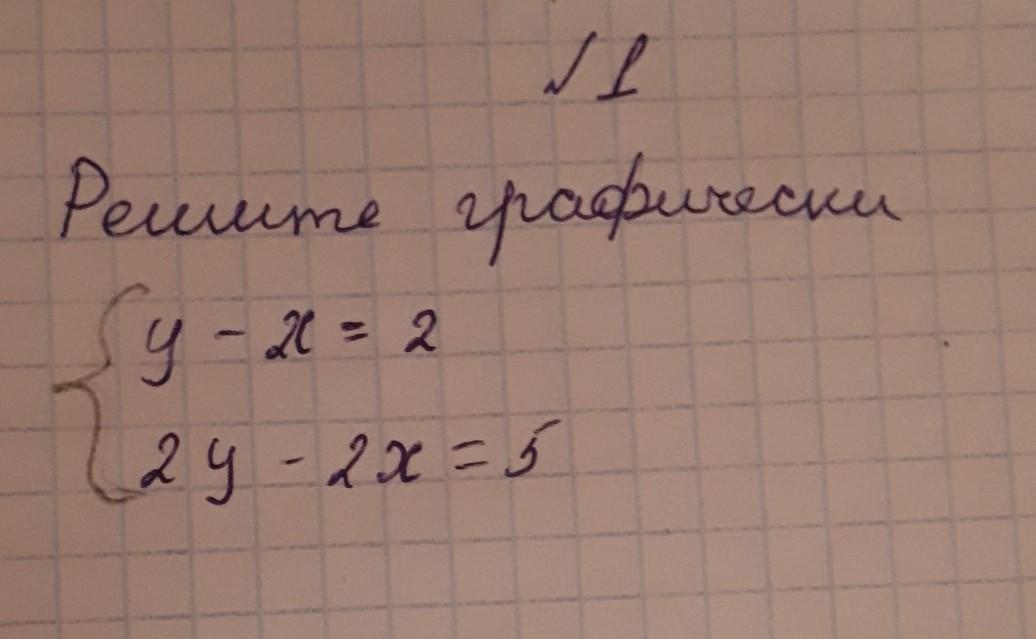 √ 1
Решите графически
y - x = 2
2y - 2x = 5